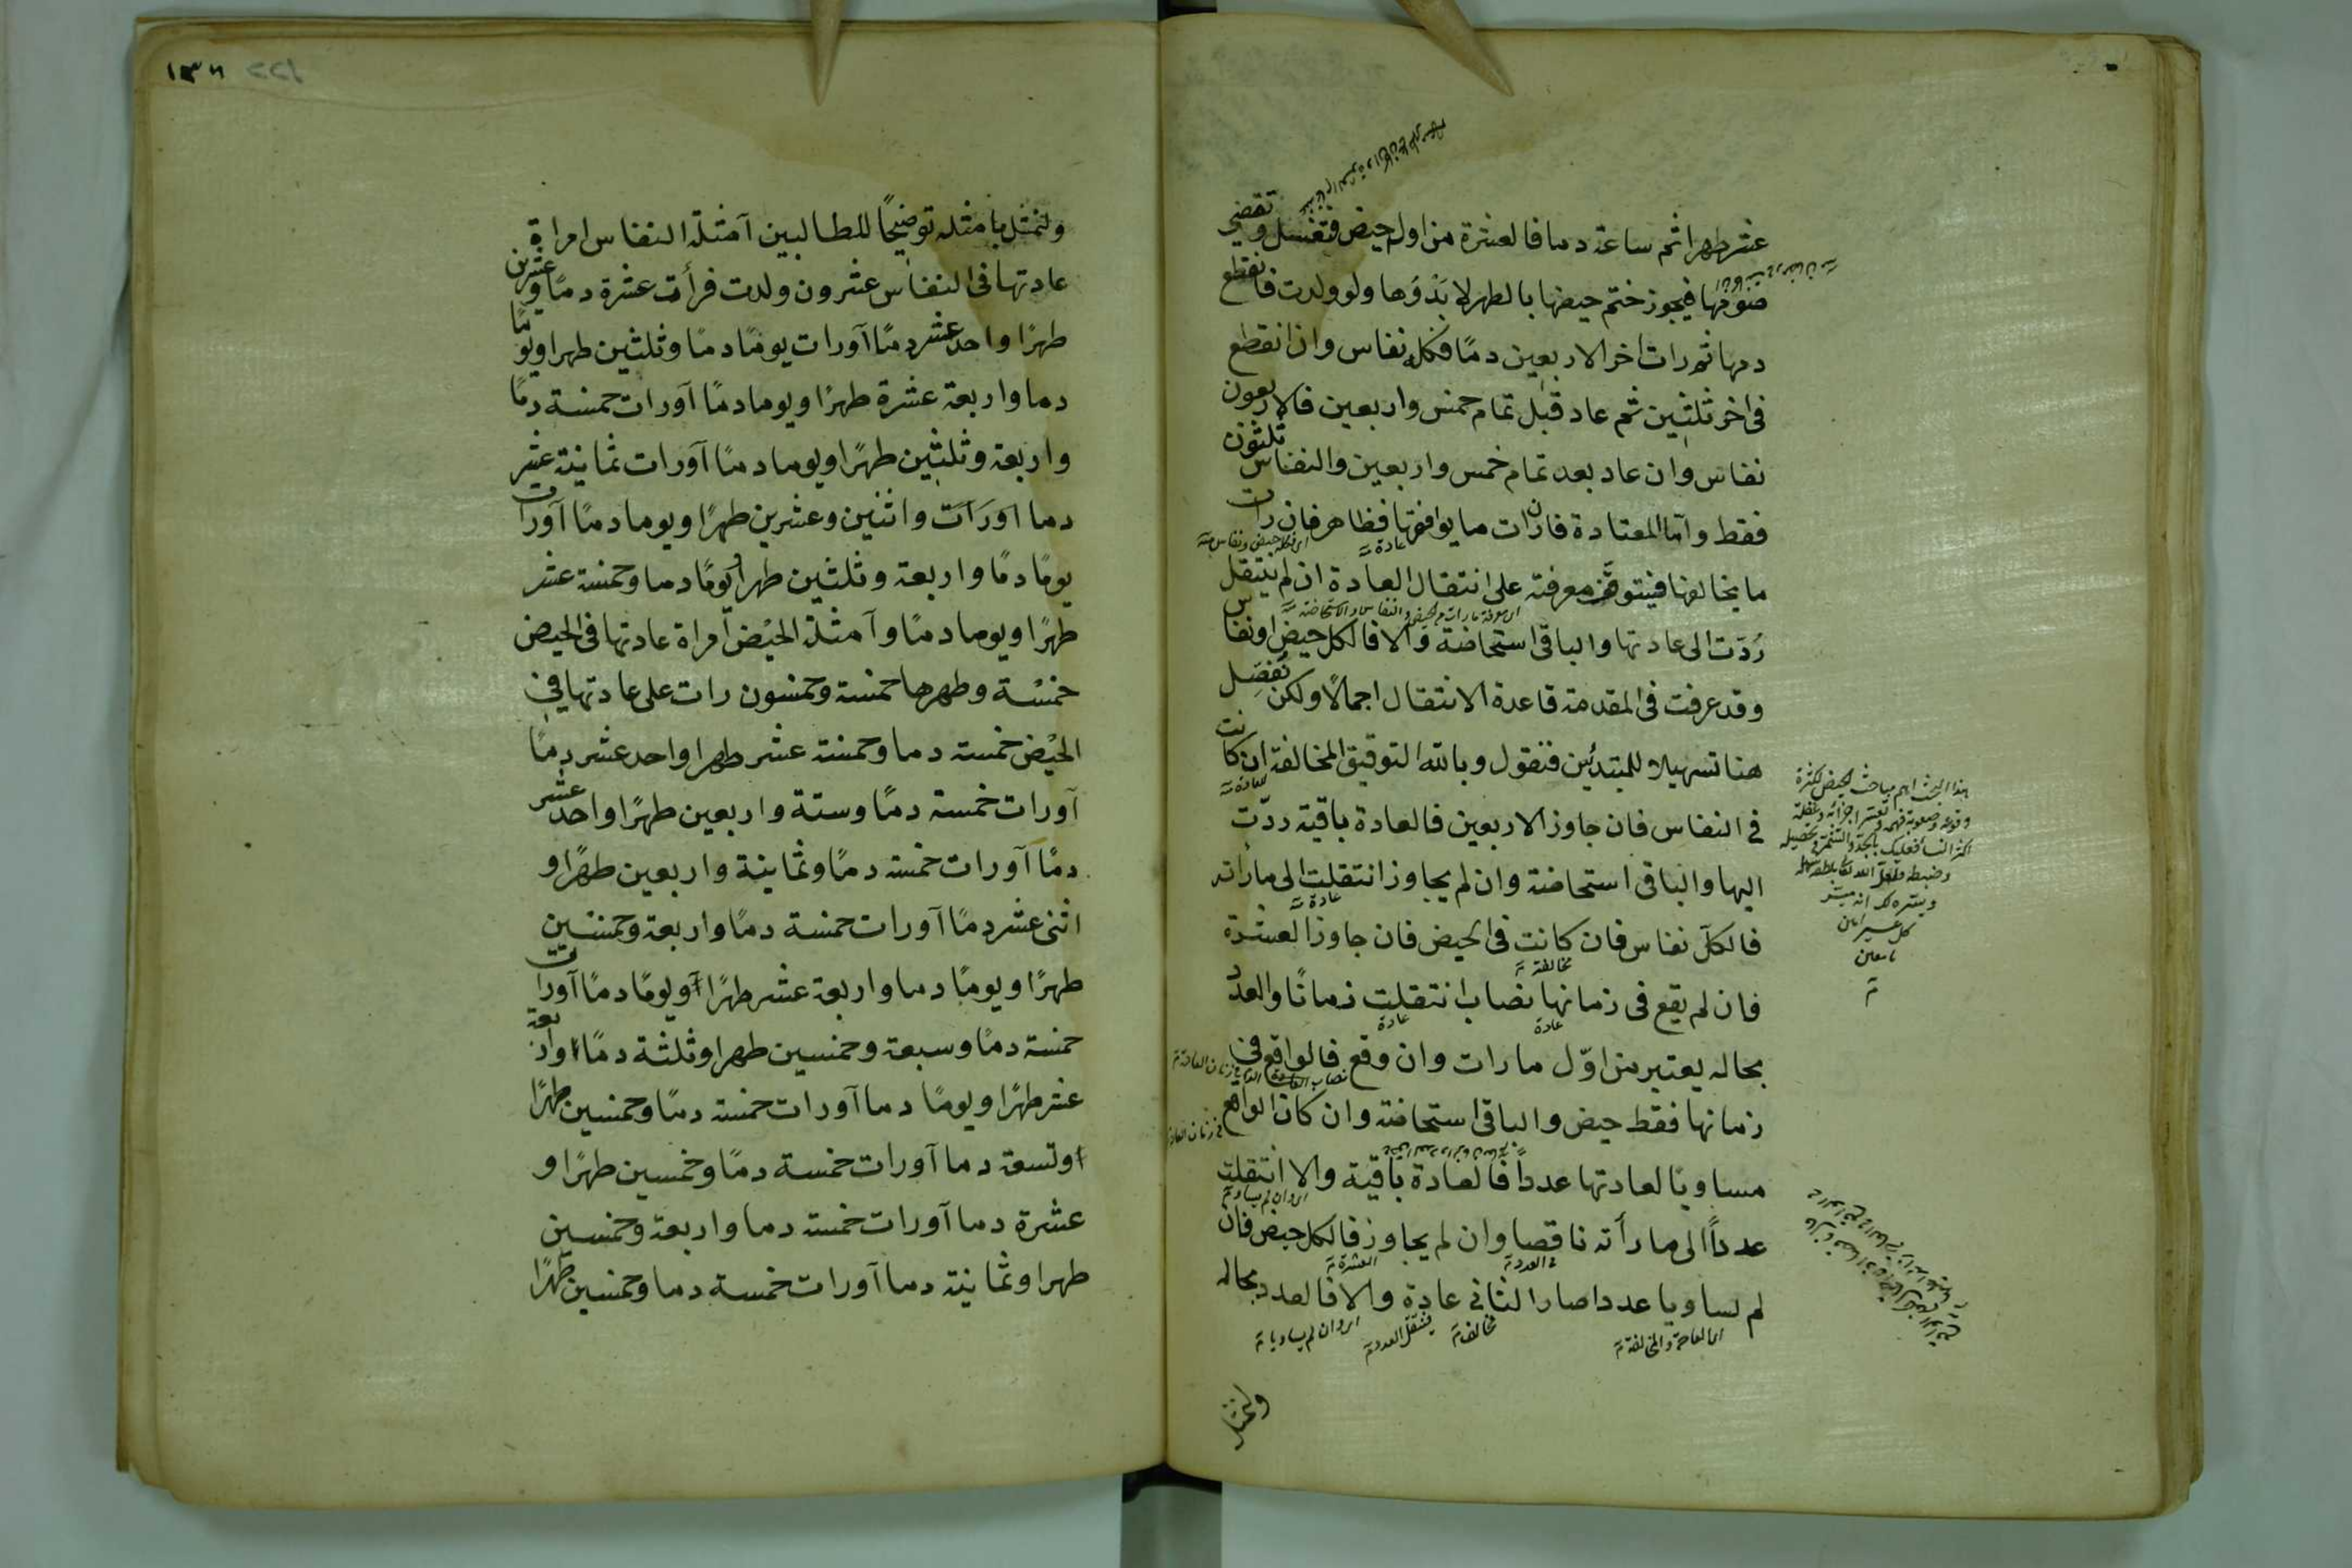 عشر طهرا ثم ساعة دما فالعشرة من اول حيض فتغتسل وتقضي
صومها فيجوز ختم حيضها بالطهر لا بدؤها ولو ولدت فانقطع
دمها ثم رات اخر الاربعين دمًا فكله نفاس وان انقطع
فى اخر ثلثين ثم عاد قبل تمام خمس واربعين فالاربعون
نفاس وان عاد بعد تمام خمس واربعين والنفاس ثلثون
فقط واما المعتادة فان رات ما يوافقها فظاهر فان رات
عادة
ما يخالفها فيتوقف معرفته على انتقال العادة ان لم ينتقل
ردّت الى عادتها والباقى استحاضة والا فالكل حيض او نفاس
وقد عرفت فى المقدمة قاعدة الانتقال اجمالًا ولكن نُفصِّل
هنا تسهيلا للمبتدئين فنقول وبالله التوفيق المخالفة ان كانت
للعادة
فى النفاس فان جاوز الاربعين فالعادة باقية ردّت
اليها والباقى استحاضة وان لم يجاوز انتقلت الى ما رأته
عادة
فالكل نفاس فان كانت فى الحيض فان جاوز العشرة
مخالفة
فان لم يقع فى زمانها نصاب انتقلت زمانًا والعدد
عادة عادة
بحاله يعتبر من اوّل ما رات وان وقع فالواقع فى
زمانها فقط حيض والباقى استحاضة وان كان الواقع
فى زمان العادة
مساويًا لعادتها عددًا فالعادة باقية والا انتقلت
اى وان لم يساو
عددًا الى ما رأته ناقصا وان لم يجاوز فالكل حيض فان
فى العدد العشرة
لم يساويا عددا صار الثانى عادة والا فالعدد بحاله
اى العادة والمخالفة مخالف ينتقل العدد اى وان لم يساويا
ولنمثل
هذا البحث اهم مباحث الحيض لكثرة
وقوعه وصعوبة فهمه وتعسر اجزائه وغفلة
اكثر النساء فعليك بالجد والتشمر فى تحصيله
وضبطه فلعل الله تعالى بلطفه يسهله
وييسره لك انه ميسر
كل عسير امين
يا معين
١٣٦
ولنمثل بامثلة توضيحًا للطالبين آمثلة النفاس امراة
عادتها فى النفاس عشرون ولدت فرأت عشرة دمًا وعشرين
طهرًا واحد عشر دمًا آورات يومًا دمًا وثلثين طهرا ويومًا
دما واربعة عشرة طهرًا ويوما دمًا آورات خمسة دمًا
واربعة وثلثين طهرًا ويوما دمًا آورات ثمانية عشر
دما واثنين وعشرين طهرًا ويوما دمًا آورات
يومًا دمًا واربعة وثلثين طهرا ويومًا دما وخمسة عشر
طهرًا ويوما دمًا وآمثلة الحيض امراة عادتها فى الحيض
خمسة وطهرها خمسة وخمسون رات على عادتها فى
الحيض خمسة دما وخمسة عشر طهرا واحد عشر دمًا
آورات خمسة دمًا وستة واربعين طهرًا واحد عشر
دمًا آورات خمسة دمًا وثمانية واربعين طهرًا و
اثنى عشر دمًا آورات خمسة دمًا واربعة وخمسين
طهرًا ويومًا دما واربعة عشر طهرًا ويومًا دمًا آورات
خمسة دمًا وسبعة وخمسين طهرا وثلثة دمًا واربعة
عشر طهرًا ويومًا دما آورات خمسة دمًا وخمسين طهرًا
وتسعة دما آورات خمسة دمًا وخمسين طهرًا و
عشرة دما آورات خمسة دما واربعة وخمسين
طهرا وثمانية دما آورات خمسة دما وخمسين طهرًا